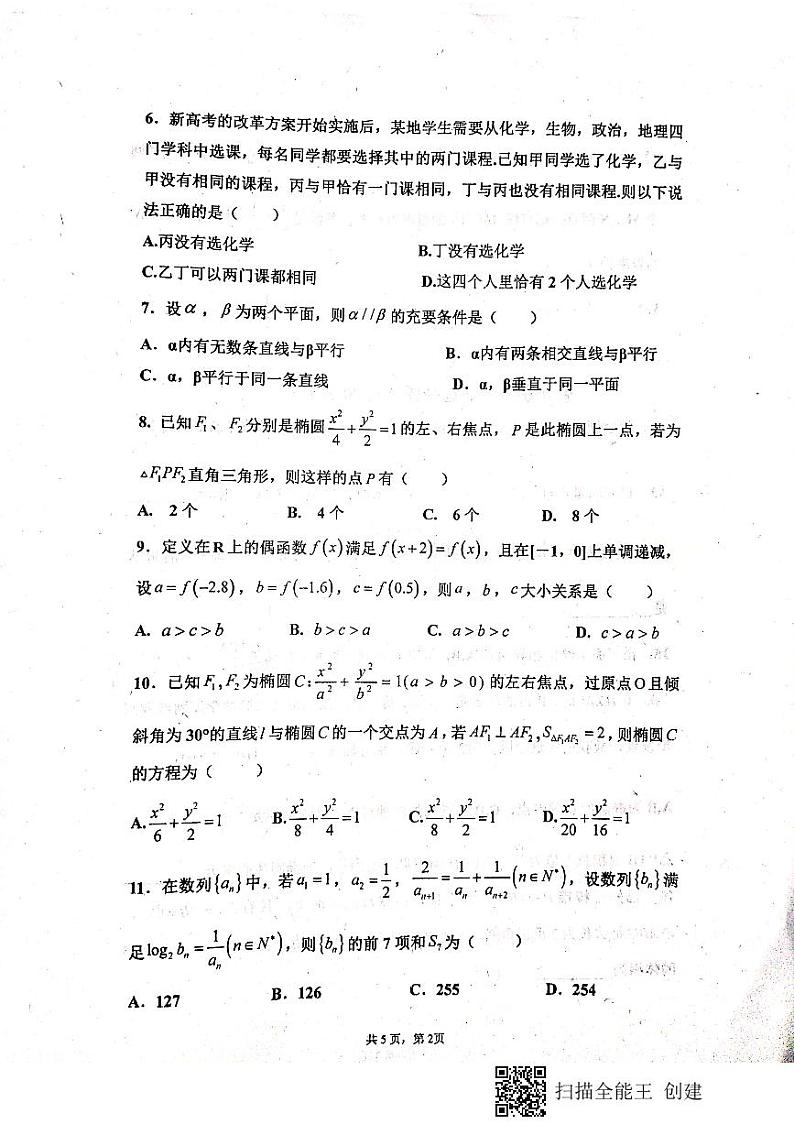 6．新高考的改革方案开始实施后，某地学生需要从化学，生物，政治，地理四
门学科中选课，每名同学都要选择其中的两门课程.已知甲同学选了化学，乙与
甲没有相同的课程，丙与甲恰有一门课相同，丁与丙也没有相同课程.则以下说
法正确的是（　　）
A.丙没有选化学　　B.丁没有选化学
C.乙丁可以两门课都相同　　D.这四个人里恰有 2 个人选化学
7．设α，β为两个平面，则α//β的充要条件是（　　）
A．α内有无数条直线与β平行　　B．α内有两条相交直线与β平行
C．α，β平行于同一条直线　　D．α，β垂直于同一平面
8. 已知 F₁、F₂分别是椭圆 x²/4 + y²/2 = 1的左、右焦点，P是此椭圆上一点，若为
△F₁PF₂直角三角形，则这样的点P有（　　）
A. 2个　　B. 4个　　C. 6个　　D. 8个
9．定义在R上的偶函数f(x)满足f(x+2)=f(x)，且在[－1，0]上单调递减，
设a=f(-2.8)，b=f(-1.6)，c=f(0.5)，则a，b，c大小关系是（　　）
A. a>c>b　　B. b>c>a　　C. a>b>c　　D. c>a>b
10．已知F₁,F₂为椭圆C: x²/a² + y²/b² = 1(a>b>0) 的左右焦点，过原点O且倾
斜角为30°的直线l与椭圆C的一个交点为A,若AF₁⊥AF₂,S△F₁AF₂=2,则椭圆C
的方程为（　　）
A. x²/6 + y²/2 = 1　　B. x²/8 + y²/4 = 1　　C. x²/8 + y²/2 = 1　　D. x²/20 + y²/16 = 1
11．在数列{aₙ}中，若a₁=1，a₂=1/2，2/aₙ₊₁ = 1/aₙ + 1/aₙ₊₂ (n∈N*)，设数列{bₙ}满
足log₂bₙ = 1/aₙ (n∈N*)，则{bₙ}的前7项和S₇为（　　）
A．127　　B．126　　C．255　　D．254
共5页，第2页
扫描全能王 创建